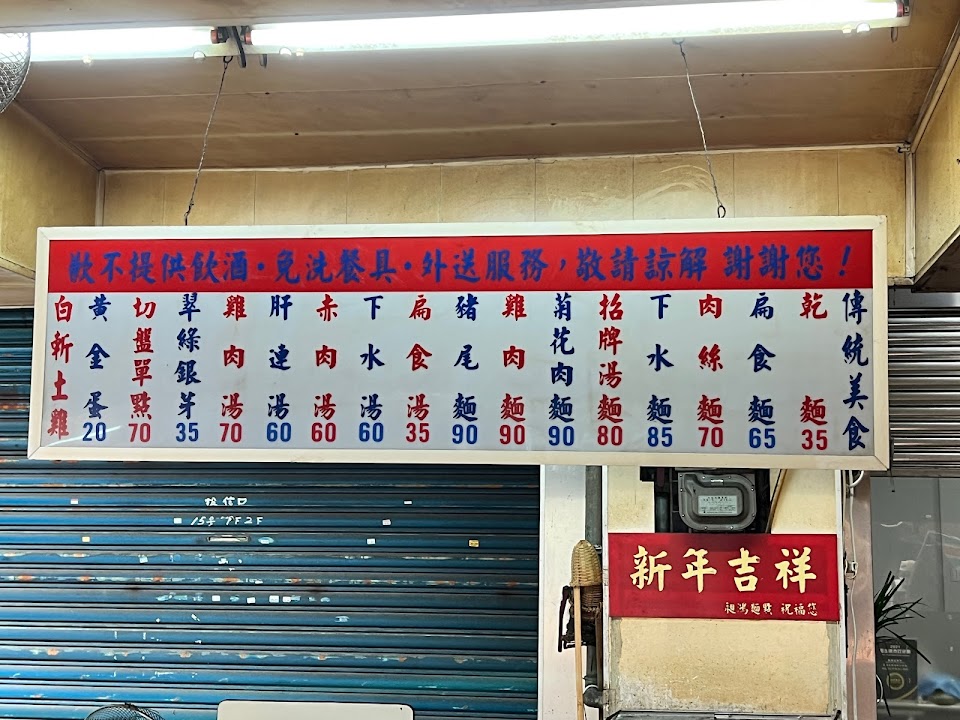 歉不提供飲酒·免洗餐具·外送服務，敬請諒解 謝謝您！
傳統美食
乾麵35
扁食麵65
肉絲麵70
下水麵85
招牌湯麵80
菊花肉麵90
雞肉麵90
豬尾麵90
扁食湯35
下水湯60
赤肉湯60
肝連湯60
雞肉湯70
翠綠銀芽35
切盤單點70
黃金蛋20
白斬土雞
投信口
15号1F2F
新年吉祥
昶鴻麵點 祝福您